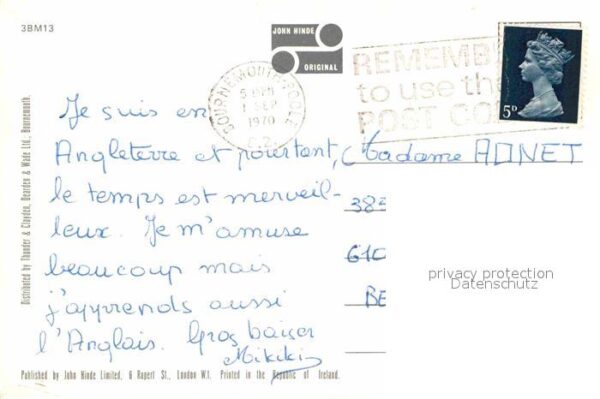 3BM13
JOHN HINDE
ORIGINAL
BOURNEMOUTH-POOLE
1 SEP
1970
REMEMB
to use the
POST CO
5D
Je suis en
Angleterre et pourtant,
le temps est merveil-
leux. Je m'amuse
beaucoup mais
j'apprends aussi
l'Anglais. Gros baiser
Mikiki
Madame ADNET
382
610
BE
privacy protection
Datenschutz
Distributed by Thunder & Clayden, Dearden & Wade Ltd., Bournemouth.
Published by John Hinde Limited, 6 Rupert St., London W.1. Printed in the Republic of Ireland.